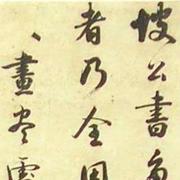 坡公書多
者乃全用
畫盡處